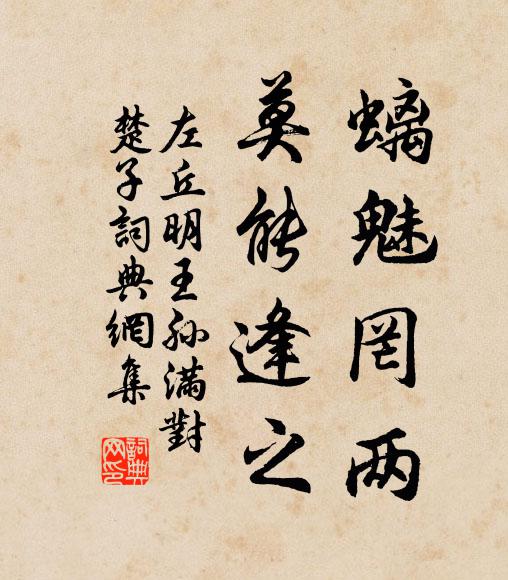 螭魅罔两
莫能逢之
左丘明王孙满對
楚子詞典網集
詞典网印